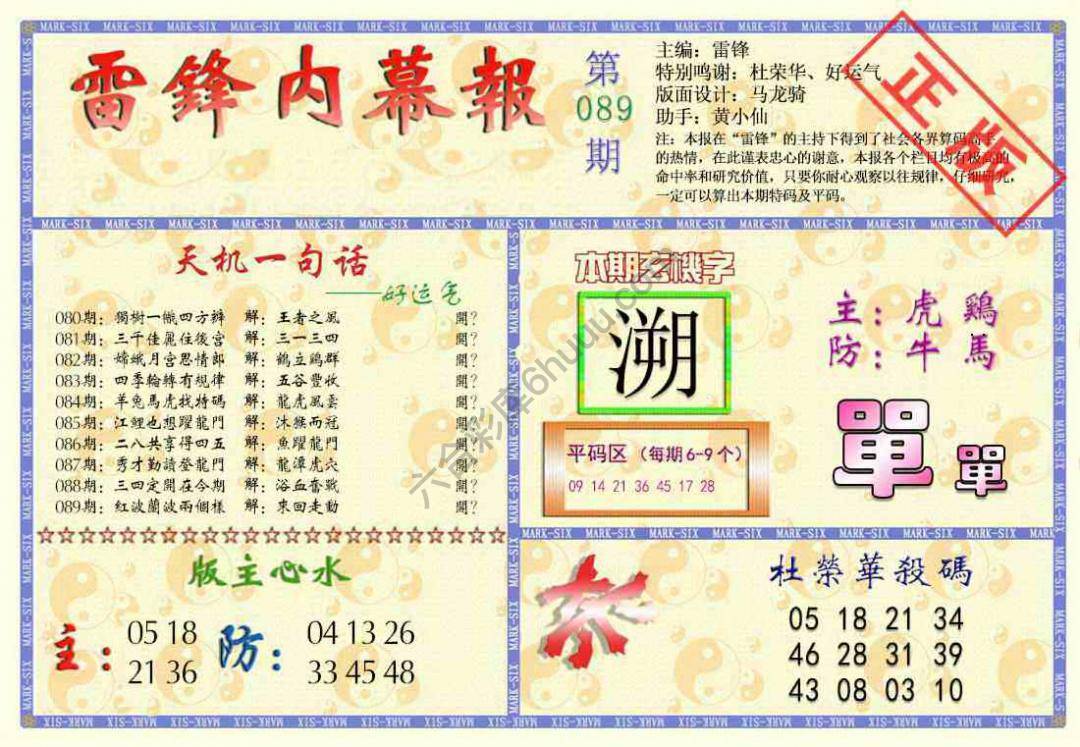 雷鋒内幕報
第
089
期
主编：雷锋
特别鸣谢：杜荣华、好运气
版面设计：马龙骑
助手：黄小仙
注：本报在“雷锋”的主持下得到了社会各界算码高手
的热情，在此谨表忠心的谢意，本报各个栏目均有极高的
命中率和研究价值，只要你耐心观察以往规律，仔细研究，
一定可以算出本期特码及平码。
正版
天机一句话
——好运气
080期：獨樹一幟四方辨 解：王者之風 開？
081期：三千佳麗住後宮 解：三一三四 開？
082期：嫦娥月宫思情郎 解：鶴立鶏群 開？
083期：四季輪轉有規律 解：五谷豐收 開？
084期：羊兔馬虎找特碼 解：龍虎風雲 開？
085期：江鯉也想躍龍門 解：沐猴而冠 開？
086期：二八共享得四五 解：魚躍龍門 開？
087期：秀才勤讀登龍門 解：龍潭虎穴 開？
088期：三四定開在今期 解：浴血奮戰 開？
089期：紅波蘭波兩個樣 解：來回走動 開？
本期玄機字
溯
主：虎 鷄
防：牛 馬
單 單
平码区（每期6-9个）
09 14 21 36 45 17 28
版主心水
主：
05 18
21 36
防：
04 13 26
33 45 48
杀
杜榮華殺碼
05 18 21 34
46 28 31 39
43 08 03 10
六合彩库6huuu.com
MARK-SIX